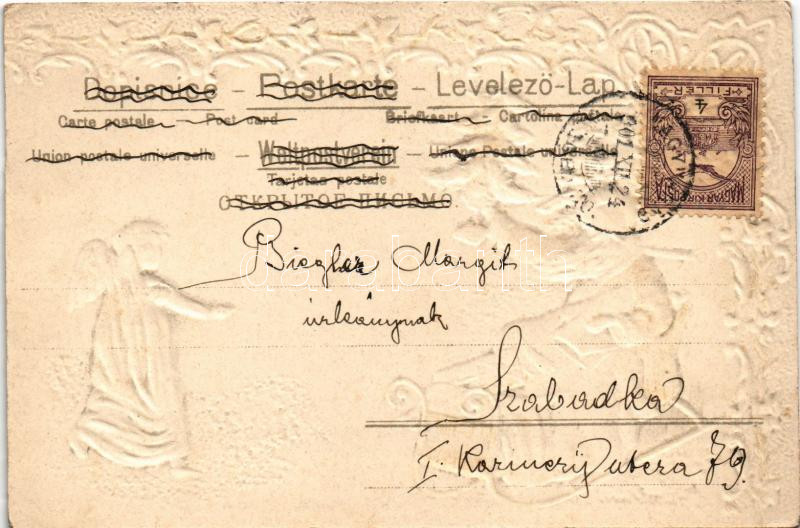 Dopisnice – Postkarte – Levelező-Lap
Carte postale – Post card Briefkaart – Cartolina postale
Union postale universelle – Weltpostverein – Unione Postale universale
Tarjetas postale
ОТКРЫТОЕ ПИСЬМО
4
FILLÉR
MAGYAR KIR.
901 XII 24
Margit
úrleánynak
Szabadka
I. utcza
darabanth